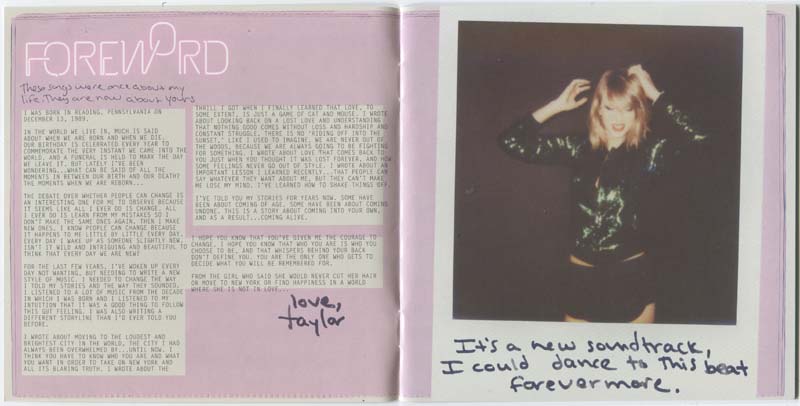 FOREWORD
These songs were once about my
life. They are now about yours
I WAS BORN IN READING, PENNSYLVANIA ON
DECEMBER 13, 1989.
IN THE WORLD WE LIVE IN, MUCH IS SAID
ABOUT WHEN WE ARE BORN AND WHEN WE DIE.
OUR BIRTHDAY IS CELEBRATED EVERY YEAR TO
COMMEMORATE THE VERY INSTANT WE CAME INTO THE
WORLD, AND A FUNERAL IS HELD TO MARK THE DAY
WE LEAVE IT. BUT LATELY I'VE BEEN
WONDERING...WHAT CAN BE SAID OF ALL THE
MOMENTS IN BETWEEN OUR BIRTH AND OUR DEATH?
THE MOMENTS WHEN WE ARE REBORN...
THE DEBATE OVER WHETHER PEOPLE CAN CHANGE IS
AN INTERESTING ONE FOR ME TO OBSERVE BECAUSE
IT SEEMS LIKE ALL I EVER DO IS CHANGE. ALL
I EVER DO IS LEARN FROM MY MISTAKES SO I
DON'T MAKE THE SAME ONES AGAIN. THEN I MAKE
NEW ONES. I KNOW PEOPLE CAN CHANGE BECAUSE
IT HAPPENS TO ME LITTLE BY LITTLE EVERY DAY.
EVERY DAY I WAKE UP AS SOMEONE SLIGHTLY NEW.
ISN'T IT WILD AND INTRIGUING AND BEAUTIFUL TO
THINK THAT EVERY DAY WE ARE NEW?
FOR THE LAST FEW YEARS, I'VE WOKEN UP EVERY
DAY NOT WANTING, BUT NEEDING TO WRITE A NEW
STYLE OF MUSIC. I NEEDED TO CHANGE THE WAY
I TOLD MY STORIES AND THE WAY THEY SOUNDED.
I LISTENED TO A LOT OF MUSIC FROM THE DECADE
IN WHICH I WAS BORN AND I LISTENED TO MY
INTUITION THAT IT WAS A GOOD THING TO FOLLOW
THIS GUT FEELING. I WAS ALSO WRITING A
DIFFERENT STORYLINE THAN I'D EVER TOLD YOU
BEFORE.
I WROTE ABOUT MOVING TO THE LOUDEST AND
BRIGHTEST CITY IN THE WORLD, THE CITY I HAD
ALWAYS BEEN OVERWHELMED BY...UNTIL NOW. I
THINK YOU HAVE TO KNOW WHO YOU ARE AND WHAT
YOU WANT IN ORDER TO TAKE ON NEW YORK AND
ALL ITS BLARING TRUTH. I WROTE ABOUT THE
THRILL I GOT WHEN I FINALLY LEARNED THAT LOVE, TO
SOME EXTENT, IS JUST A GAME OF CAT AND MOUSE. I WROTE
ABOUT LOOKING BACK ON A LOST LOVE AND UNDERSTANDING
THAT NOTHING GOOD COMES WITHOUT LOSS AND HARDSHIP AND
CONSTANT STRUGGLE. THERE IS NO "RIDING OFF INTO THE
SUNSET," LIKE I USED TO IMAGINE. WE ARE NEVER OUT OF
THE WOODS, BECAUSE WE ARE ALWAYS GOING TO BE FIGHTING
FOR SOMETHING. I WROTE ABOUT LOVE THAT COMES BACK TO
YOU JUST WHEN YOU THOUGHT IT WAS LOST FOREVER, AND HOW
SOME FEELINGS NEVER GO OUT OF STYLE. I WROTE ABOUT AN
IMPORTANT LESSON I LEARNED RECENTLY...THAT PEOPLE CAN
SAY WHATEVER THEY WANT ABOUT ME, BUT THEY CAN'T MAKE
ME LOSE MY MIND. I'VE LEARNED HOW TO SHAKE THINGS OFF.
I'VE TOLD YOU MY STORIES FOR YEARS NOW. SOME HAVE
BEEN ABOUT COMING OF AGE. SOME HAVE BEEN ABOUT COMING
UNDONE. THIS IS A STORY ABOUT COMING INTO YOUR OWN,
AND AS A RESULT...COMING ALIVE.
I HOPE YOU KNOW THAT YOU'VE GIVEN ME THE COURAGE TO
CHANGE. I HOPE YOU KNOW THAT WHO YOU ARE IS WHO YOU
CHOOSE TO BE, AND THAT WHISPERS BEHIND YOUR BACK
DON'T DEFINE YOU. YOU ARE THE ONLY ONE WHO GETS TO
DECIDE WHAT YOU WILL BE REMEMBERED FOR.
FROM THE GIRL WHO SAID SHE WOULD NEVER CUT HER HAIR
OR MOVE TO NEW YORK OR FIND HAPPINESS IN A WORLD
WHERE SHE IS NOT IN LOVE...
love,
taylor
It's a new soundtrack,
I could dance to this beat
forevermore.